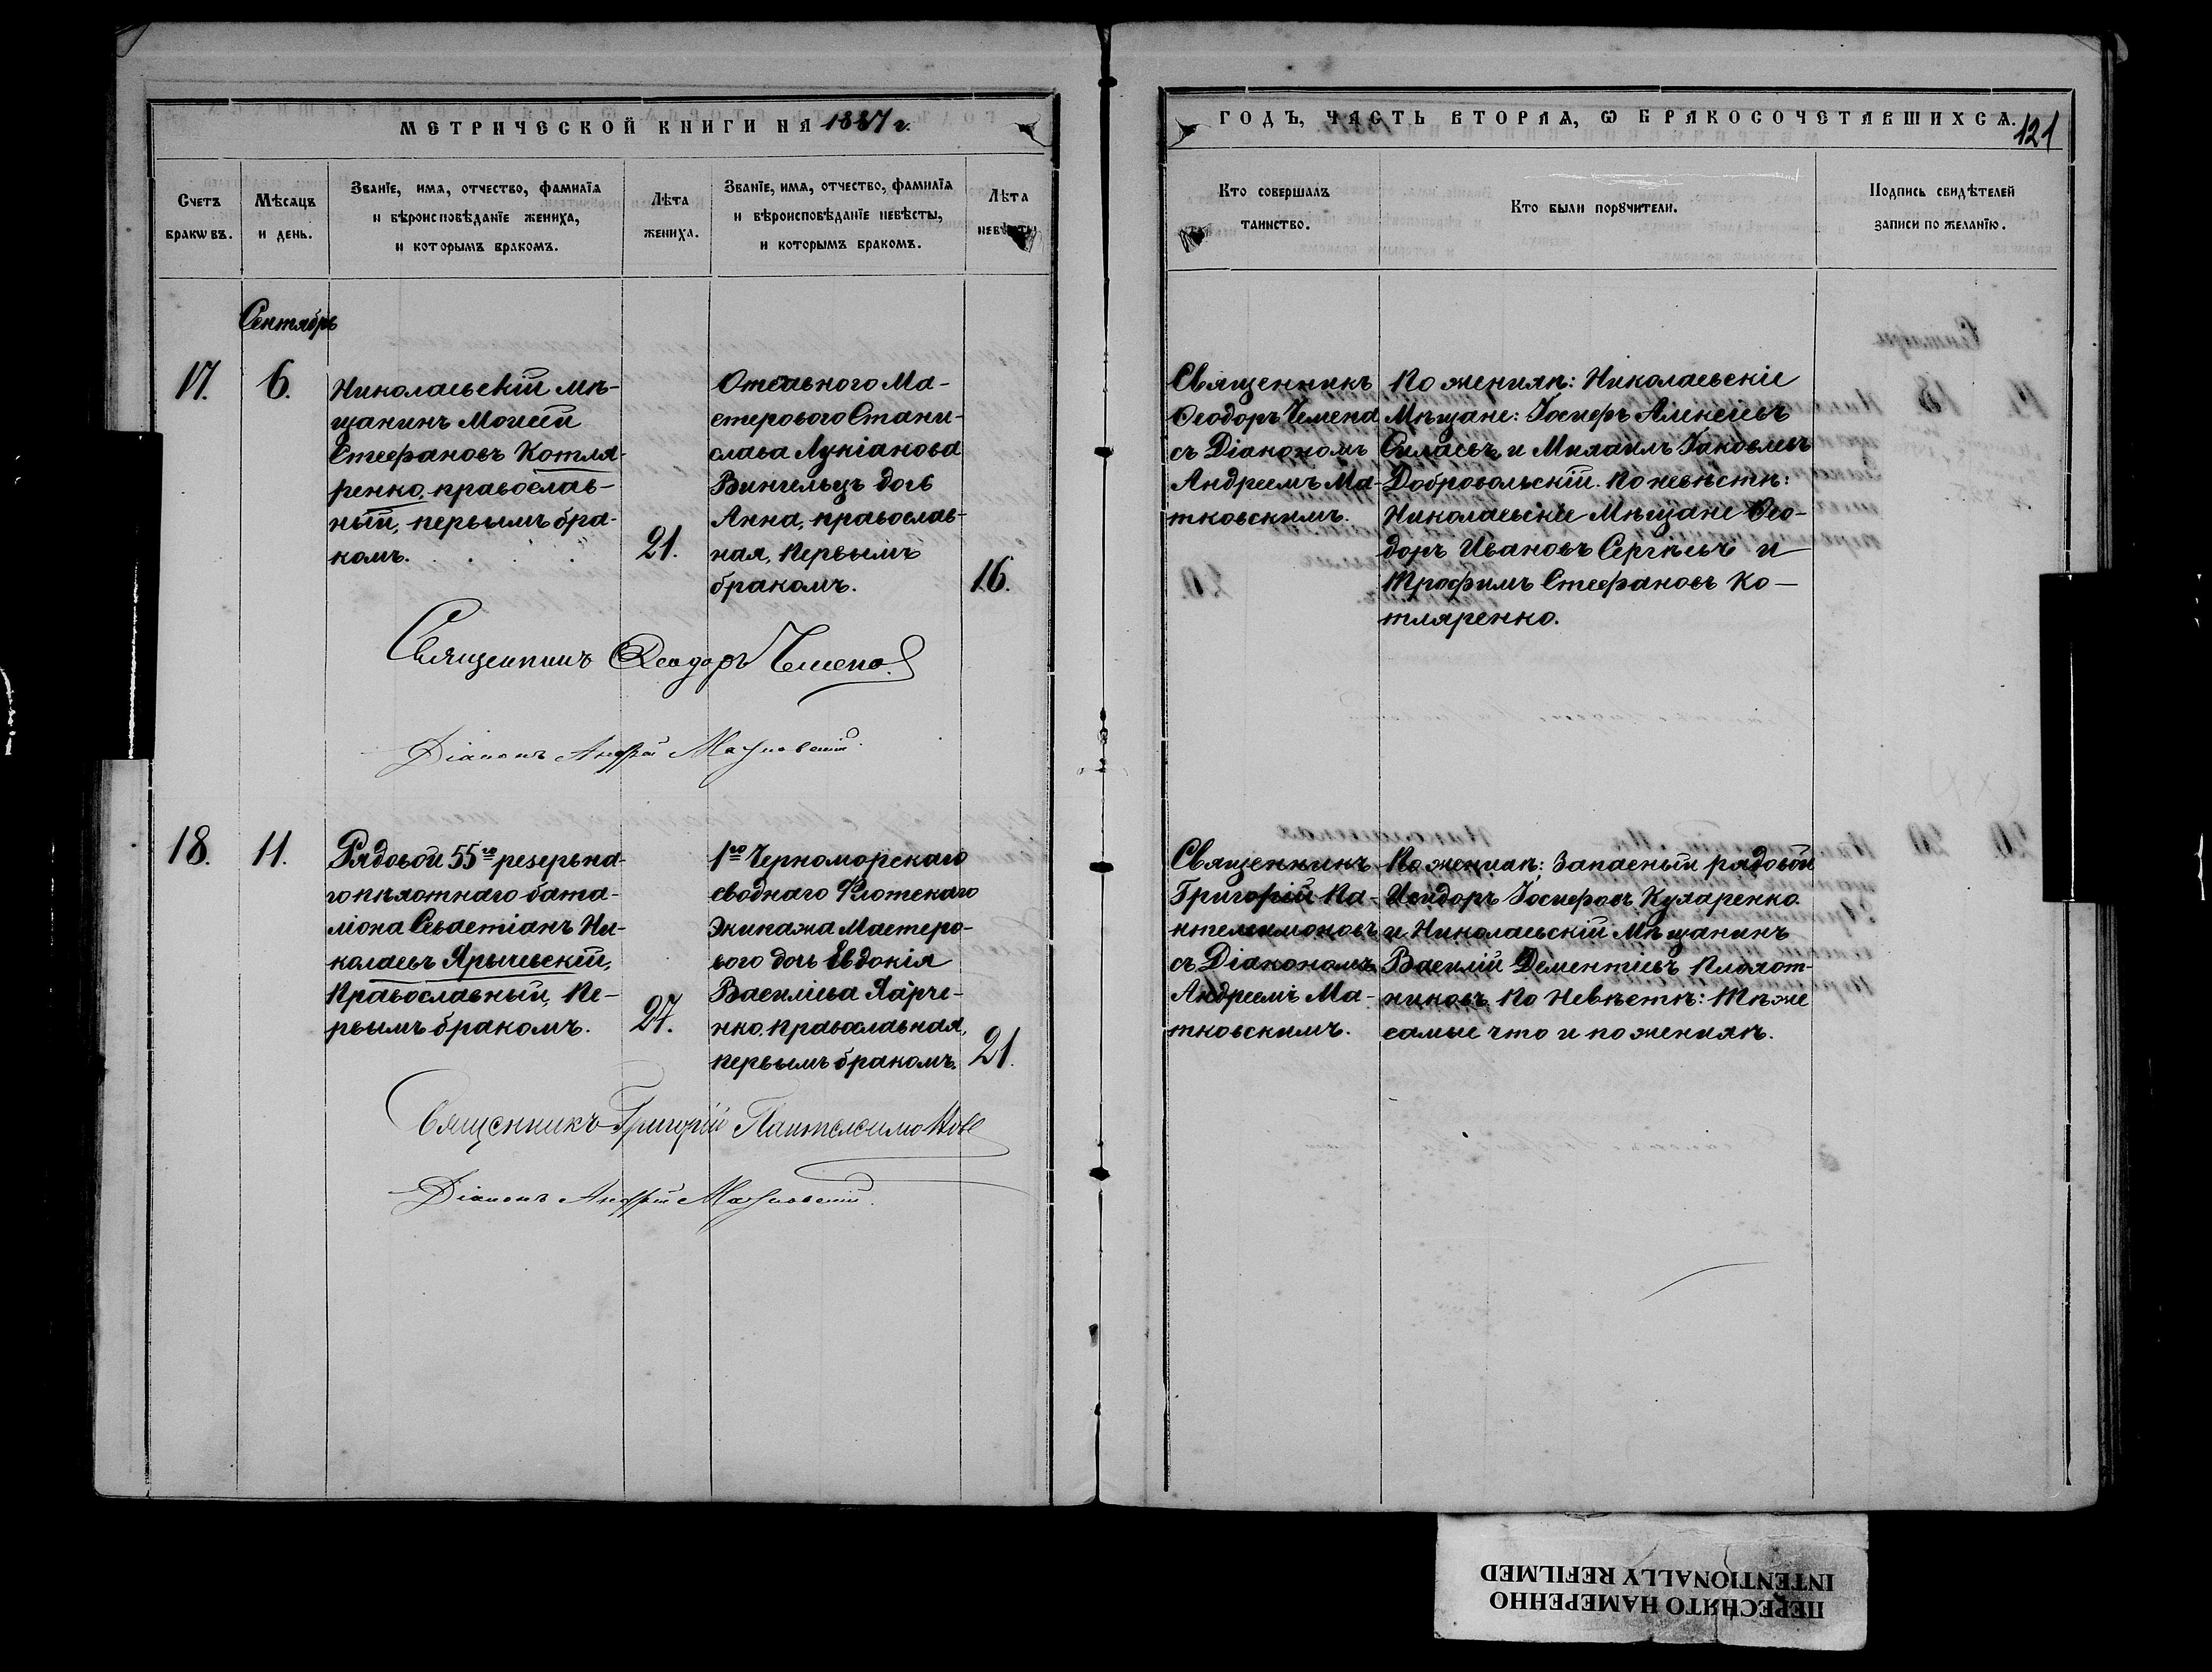 МЕТРИЧЕСКОЙ КНИГИ НА 1887 г.
Счетъ браковъ.
Мѣсяцъ и день.
Званїе, имя, отчество, фамилїя и вѣроисповѣданїе жениха, и которымъ бракомъ.
Лѣта жениха.
Званїе, имя, отчество, фамилїя и вѣроисповѣданїе невѣсты, и которымъ бракомъ.
Лѣта невѣсты
Сентябрь
17.
6.
Николаевскій мѣ-
щанинъ Моисей
Стефановъ Котля-
ренко, православ-
ный, первымъ бра-
комъ.
21.
Отставного Ма-
стерового Стани-
слава Лукіанова
дочь
Анна, православ-
ная, первымъ
бракомъ.
16.
Священникъ Ѳеодоръ Чемена
Діаконъ Андрей Матковскій.
18.
11.
Рядовой 55го резервна-
го пѣхотнаго бата-
ліона Севастіанъ Ни-
колаевъ Ярычевскій,
Православный, Пе-
рвымъ бракомъ.
27.
1го Черноморскаго
своднаго Флотскаго
Экипажа Мастеро-
вого дочь Евдокія
Василіева Харче-
нко, православная,
первымъ бракомъ.
21.
Священникъ Григорій Пантелеимоновъ
Діаконъ Андрей Матковскій.
ГОДЪ, ЧАСТЬ ВТОРАЯ, Ѡ БРАКОСОЧЕТАВШИХСЯ.
121
Кто совершалъ таинство.
Кто были поручители.
Подпись свидѣтелей записи по желанїю.
Священникъ
Ѳеодоръ Чемена
съ Діакономъ
Андреемъ Ма-
тковскимъ.
По женихѣ: Николаевскіе
Мѣщане: Іосифъ Алексѣевъ
Силаевъ и Михаилъ Іаковлевъ
Добровольскій. По невѣстѣ:
Николаевскіе Мѣщане Ѳео-
доръ Ивановъ Сергѣевъ и
Трофимъ Стефановъ Ко-
тляренко.
Священникъ
Григорій Па-
нтелеимоновъ
съ Діакономъ
Андреемъ Ма-
тковскимъ.
По женихѣ: Запасный рядовой
Исидоръ Іосифовъ Кухаренко
и Николаевскій Мѣщанинъ
Василій Дементіевъ Плохот-
никовъ. По Невѣстѣ: Тѣ же
самые что и по женихѣ.
ПЕРЕСНЯТО НАМЕРЕННО
INTENTIONALLY REFILMED